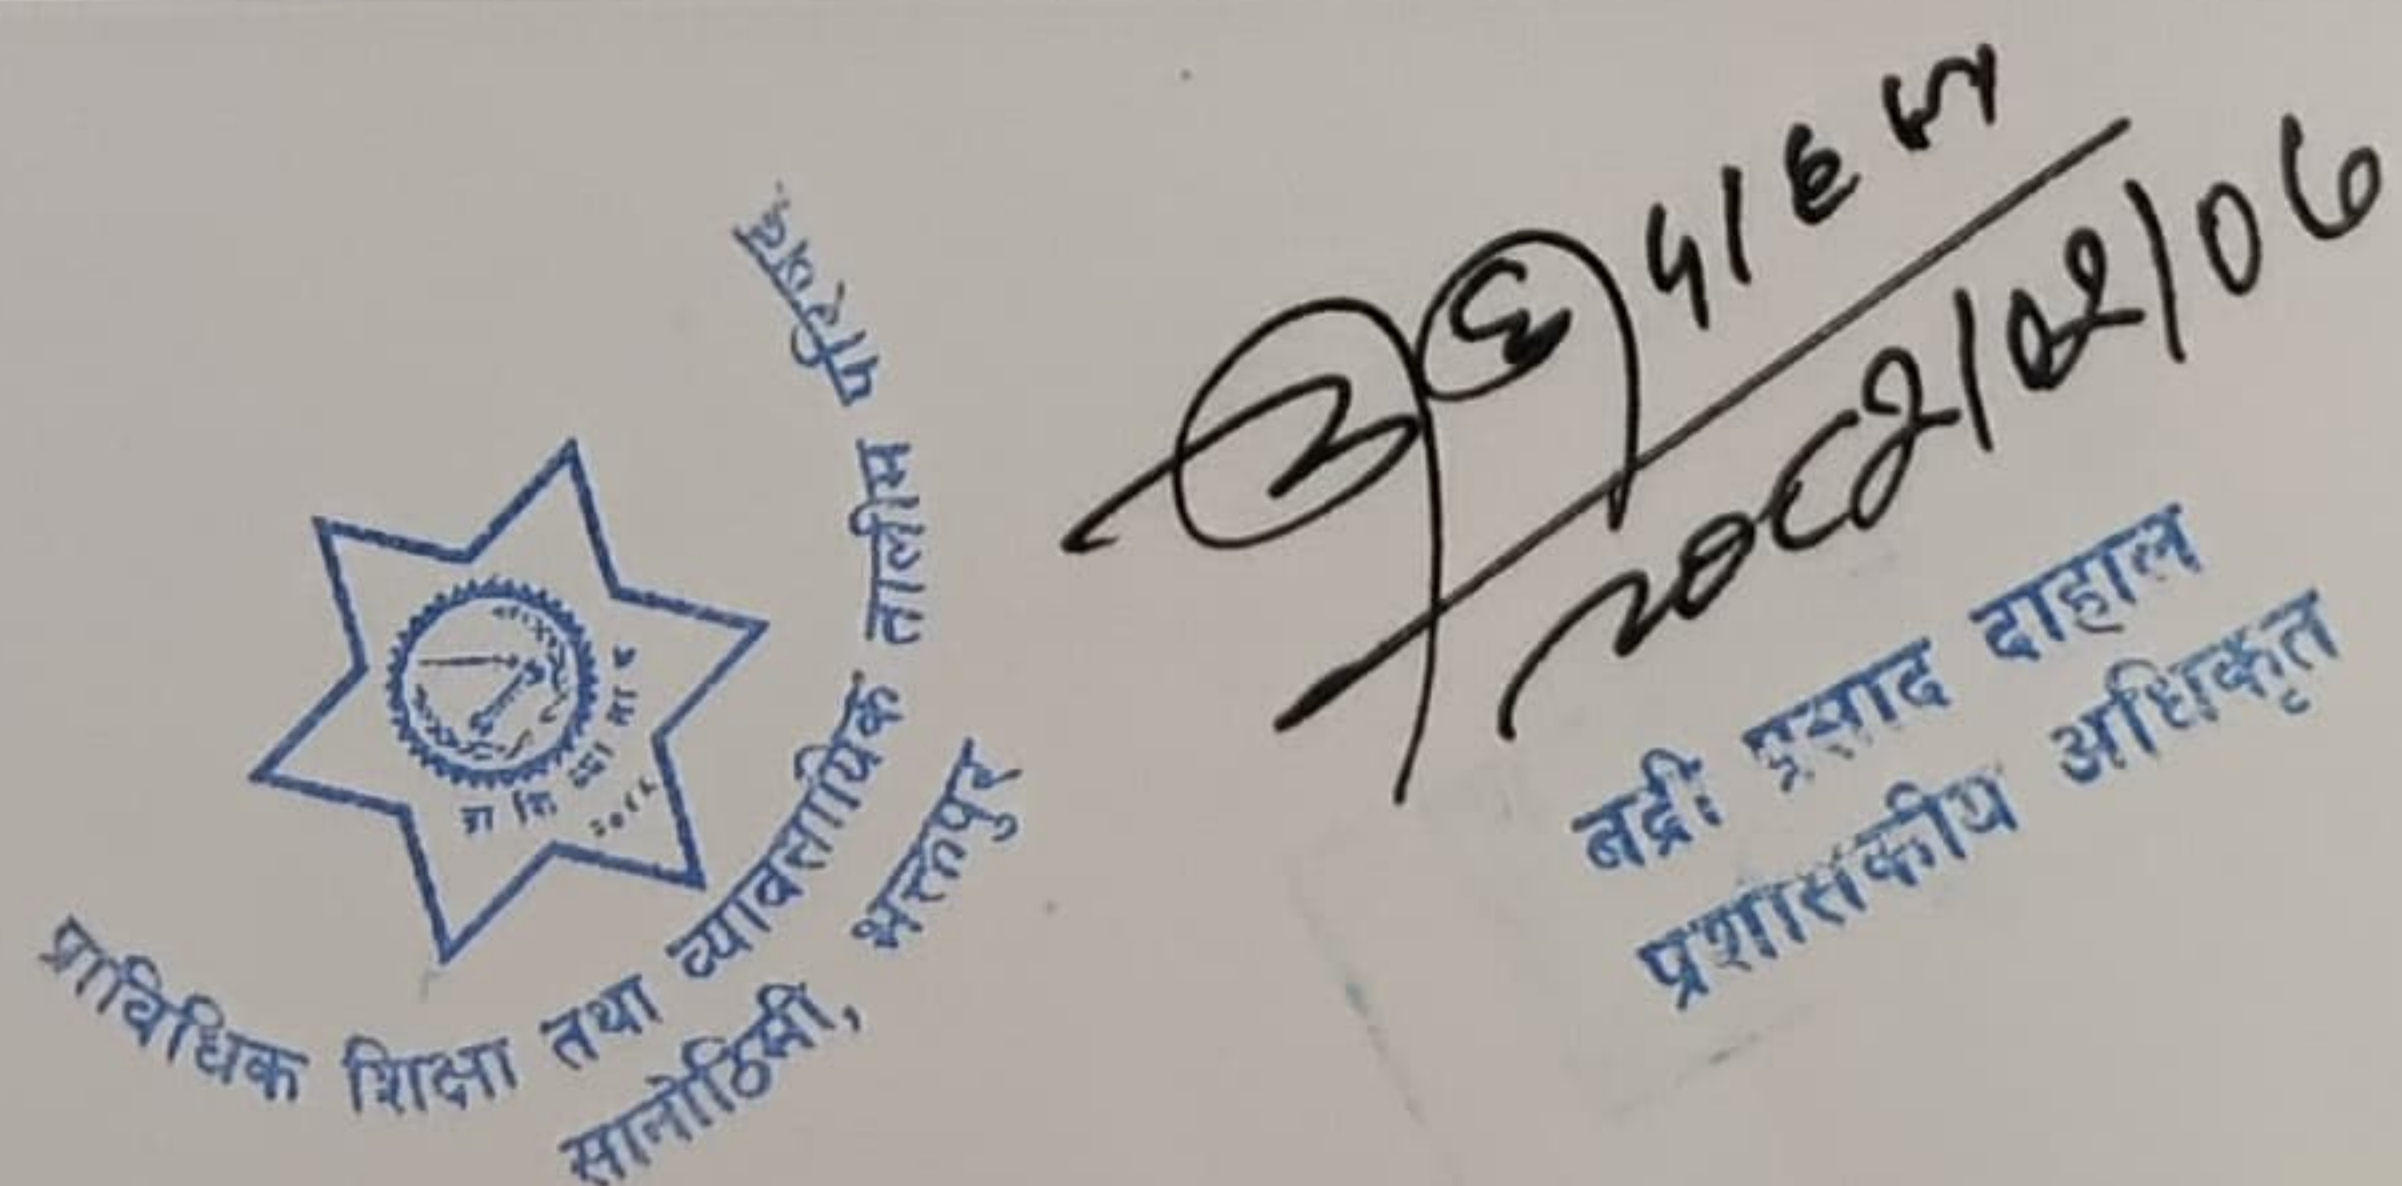 प्राविधिक शिक्षा तथा व्यावसायिक तालीम परिषद्
सानोठिमी, भक्तपुर
प्रा शि
२०८२/०२/०७
बद्री प्रसाद दाहाल
प्रशासकीय अधिकृत